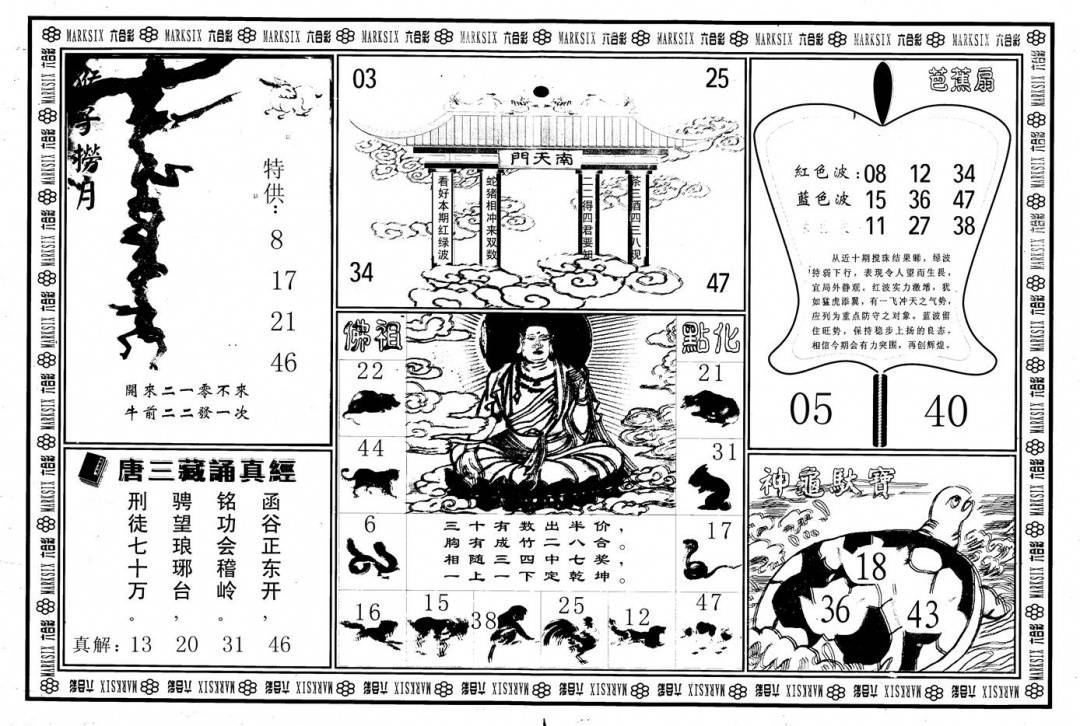 MARKSIX 六合彩 MARKSIX 六合彩 MARKSIX 六合彩 MARKSIX 六合彩 MARKSIX 六合彩 MARKSIX 六合彩 MARKSIX 六合彩 MARKSIX 六合彩 MARKSIX 六合彩 MARKSIX 六合彩
猴子撈月
特供:
8
17
21
46
開來二一零不來
牛前二二發一次
03
25
南天門
看好本期红绿波
蛇猪相冲来双数
一二得四君要知
茶三酒四三八现
34
47
芭蕉扇
紅色波:08 12 34
蓝色波 15 36 47
11 27 38
从近十期搅珠结果睇，绿波
持弱下行，表现令人望而生畏，
宜局外静观。红波实力激增，犹
如猛虎添翼，有一飞冲天之气势，
应列为重点防守之对象。蓝波留
住旺势，保持稳步上扬的良态，
相信今期会有力突围，再创辉煌。
05
40
唐三藏誦真經
函谷正东开，
铭功会稽岭。
骋望琅琊台，
刑徒七十万。
真解: 13 20 31 46
佛祖
點化
22
21
44
31
6
17
三十有数出半价，
胸有成竹二八合。
相随三四中七奖，
一上一下定乾坤。
16
15
38
25
12
47
神龜馱寶
18
36
43